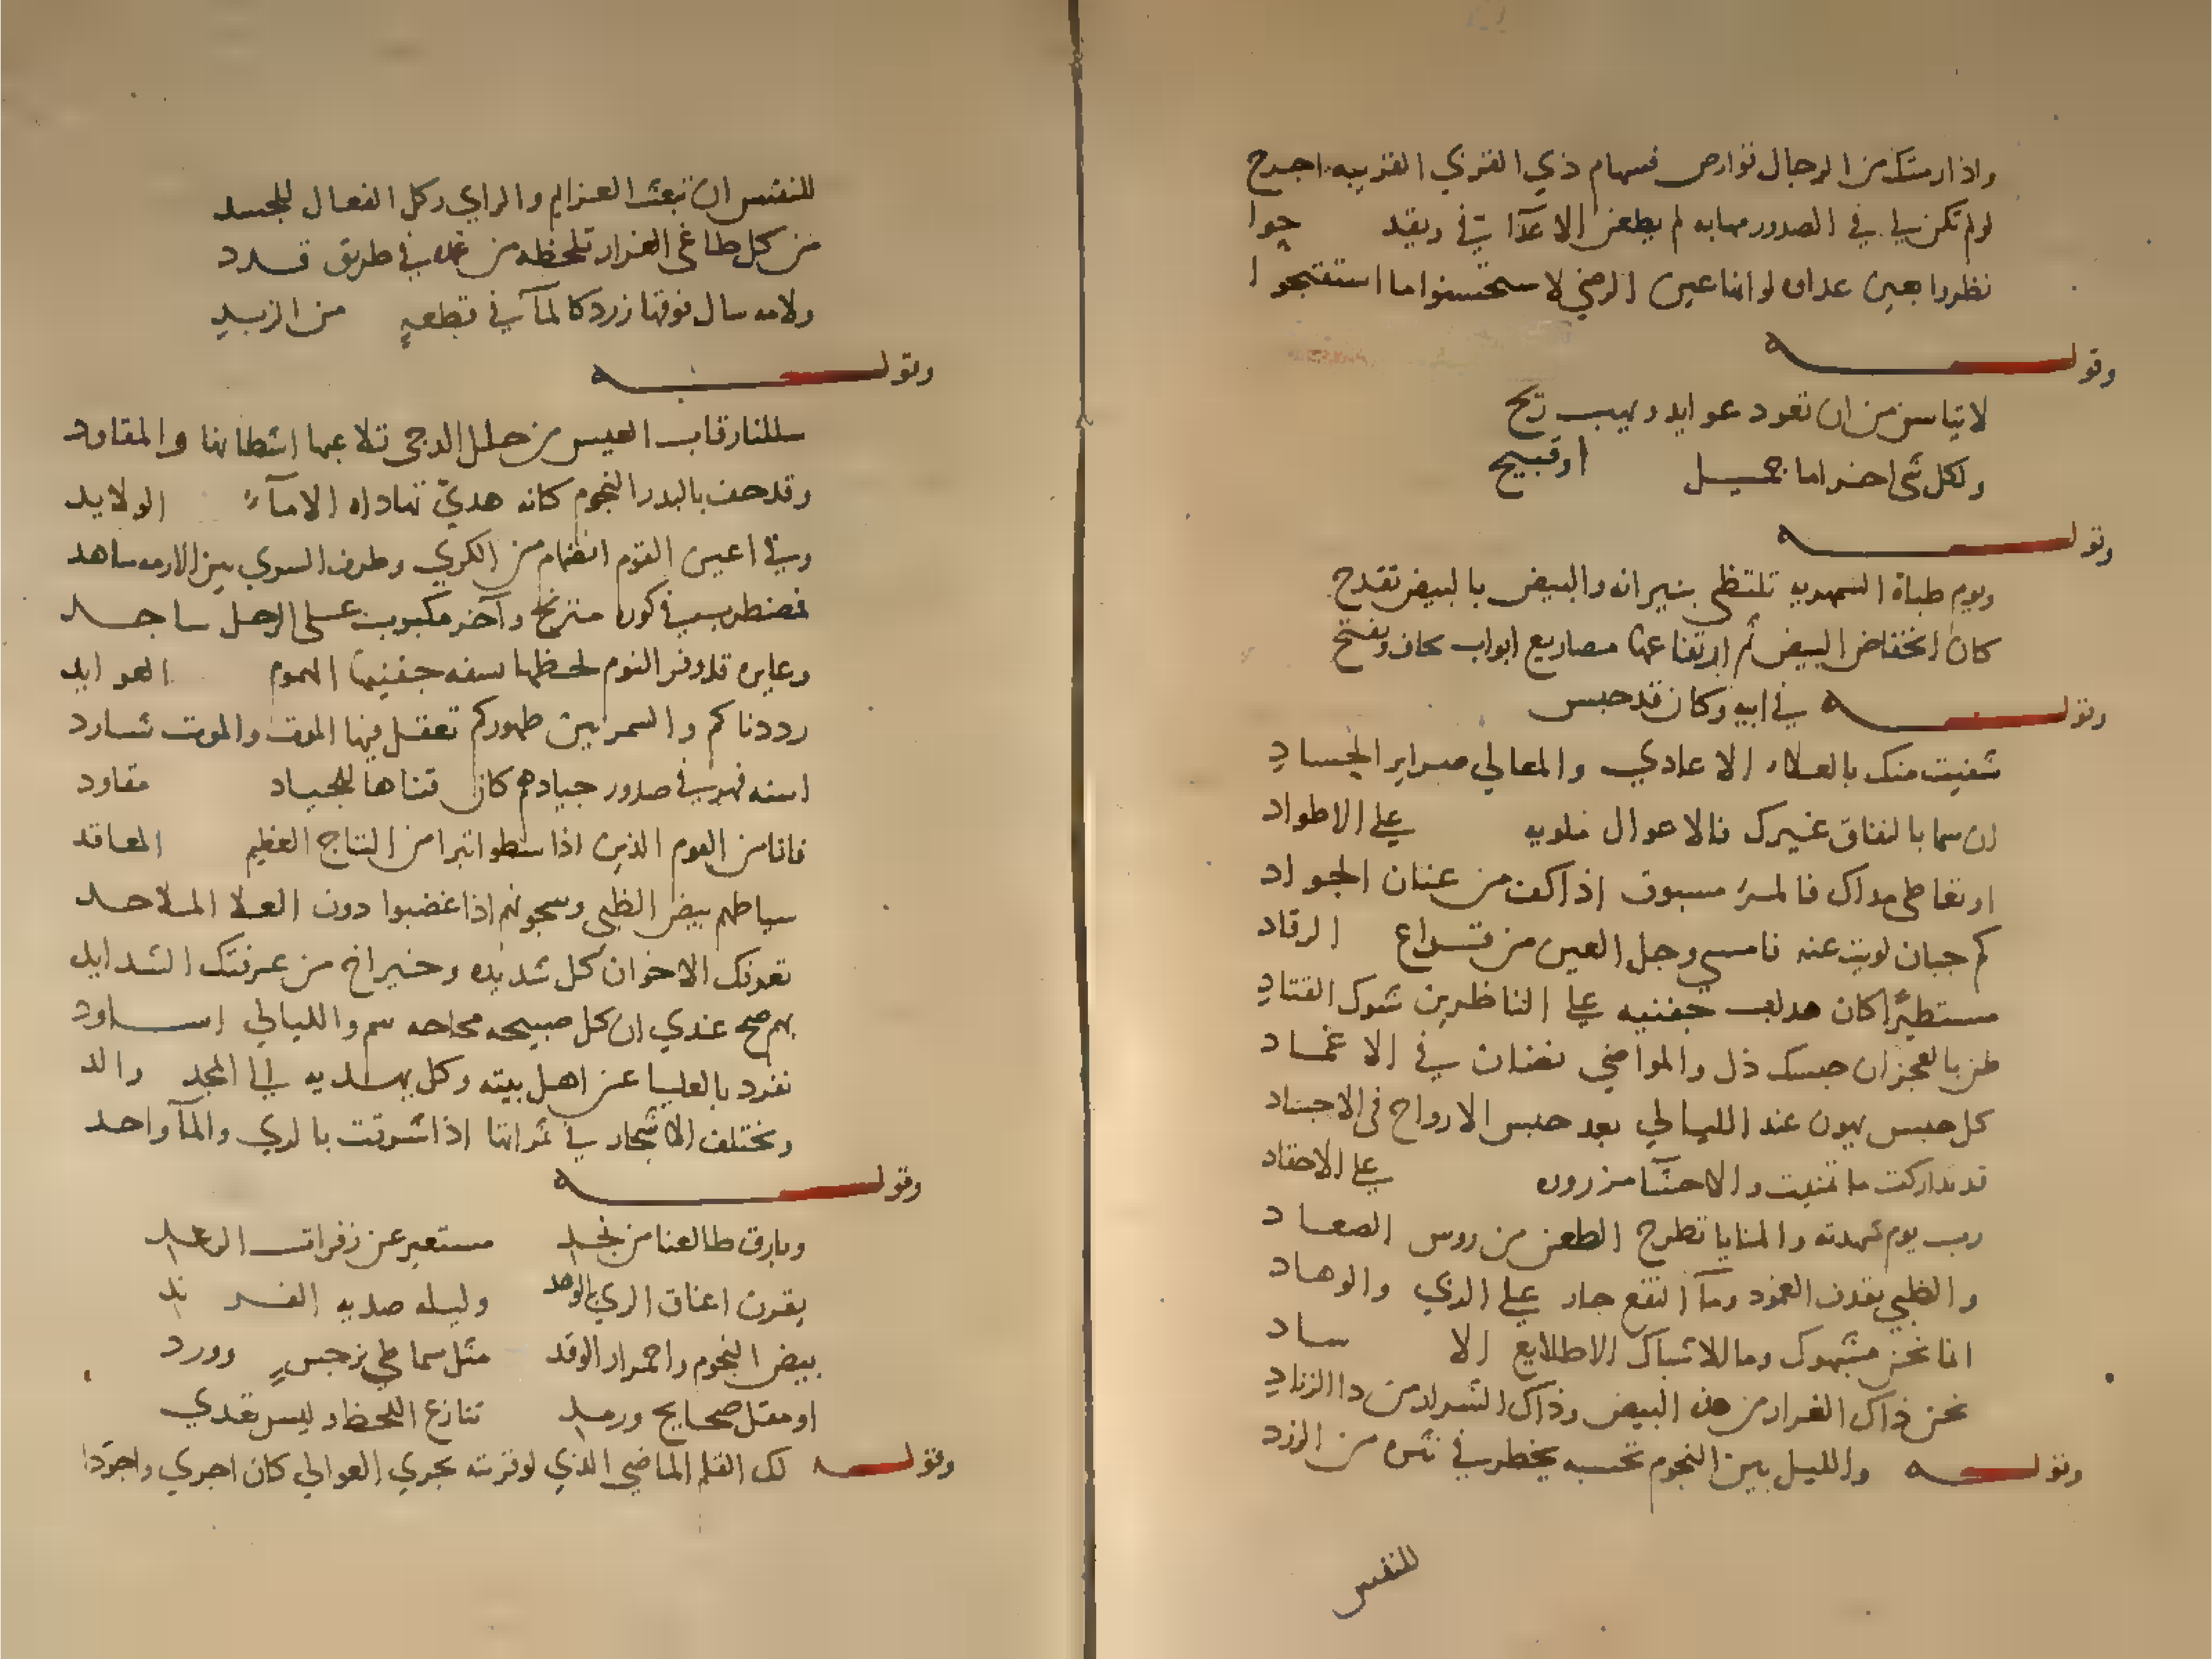 واذا رمتك من الرجال قوارص فسهام ذي القربي القريبه اجرح
لو لم تكن لي في الصدور مهابه لم يطعن الاعدآ في ويقد حوا
نظروا بعين عداوه لو انها عين الرضي لاستحسنوا ما استقبحوا
وقولـــه
لا تياسن من ان تعود عوايد ويهب ريح
ولكل شي اخر اما جميـل او قبيح
وقولـــه
ويوم ظباة السمهريه تلتظي بنيرانه والبيض بالبيض تقدح
كان انخفاض البيض ثم ارتفاعها مصاريع ابواب تجاف وتفتح
وقولـــه في ابيه وكان قد حبس
شفيت منك بالعلاء الاعادي والمعالي ضراير الحساد
ان سما بالنفاق غيرك فالاحوال ملويه علي الاطواد
او تعاطي مداك فالمرء مسبوق اذا كف من عنان الجواد
كم جبان لويت عنه فامسي وجل العين من قراع الرقاد
مستطيرًا كان هدب جفنيه علي الناظرين شوك القتاد
ظن بالعجز ان حبسك ذل والمواضي تصان في الاغماد
كل حبس يهون عند الليالي بعد حبس الارواح في الاجساد
قد تداركت ما تمنيت والاحشآ مزروره علي الاحقاد
رب يوم شهدته والمنايا تطرح الطعن من روس الصعاد
والظبي يقذف الغمود ومآ النقع جار علي الذي والوهاد
انما نحن مشبهوك وما للاشبال الا طلايع الاساد
نحن ذاك الغرار من هذه البيض وذاك الشرار من ذا الزناد
وقولـــه والليل بين النجوم تحسبه يخطر في نثره من الزرد
للنفس
للنفس ان تبعث العزايم والراي وكل الفعال للجسد
من كل طاغي الغرار تلحظه من غمده في طريق قـدد
ولامه سال فوقها زرد كالمآ في قطعه من الزبد
وقولـــه
سللنا رقاب العيس من حلل الدجي تلاعبها اشطانها والمقاود
وقد حف بالبدر النجوم كانه هدي تهاداه الامآء الولايد
وفي اعين القوم انضمام من الكري وطرف السري بين الازمه ساهد
فمضطرب في كوره مترنح وآخر مكبوب علي الرحل ساجـد
وعايره قد وفر النوم لحظها سفه جفنيها الهموم العوايد
رددناكم والسمر بين ظهوركم تعقل فيها الموت والموت شارد
اسنه فهر في صدور جيادهم كان قناها للجياد مقاود
فانا من القوم الذين اذا سطوا تبرا من التاج العظيم المعاقد
سياطهم بيض الظبي وسجونهم اذا غضبوا دون العلا الملاحـد
تعرفك الاخوان كل شديده وخير اخ من عرفتك الشدايد
بهم صح عندي ان كل صبيحه مجاجه سم والليالي اسـاود
تفرد بالعليا عن اهل بيته وكل يهـديه الي المجد والد
وتختلف الاشجار في ثمراتها اذا شرقت بالري والمآ واحد
وقولـــه
وبارق طالعنا من نجـد مستعبر عن زفرات الرعـد
يقرن اعناق الربي بالوهد وليله صديه الفـرند
بيض النجوم واحمرار الوقد مثل سماطي نرجس وورد
او مقل صحايح ورمـد تنازع اللحظ وليس تعدي
وقولـــه لك القلم الماضي الذي لو قرنته بجري العوالي كان اجري واجودا